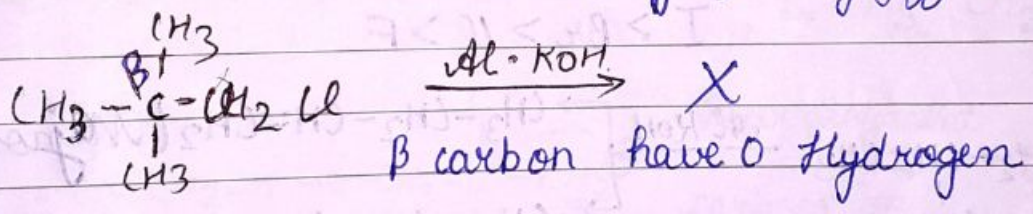 CH3
β
CH3 - C - CH2 Cl Al. KOH X
CH3
β carbon have 0 Hydrogen